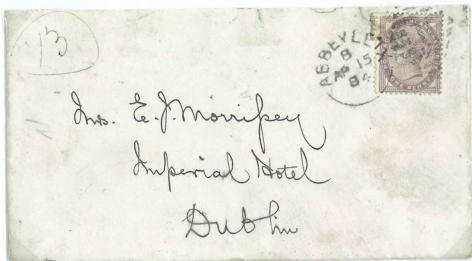 13
ABBEYLEIX
B
AP 15
84
Mrs. E. J. Morrissey
Imperial Hotel
Dublin